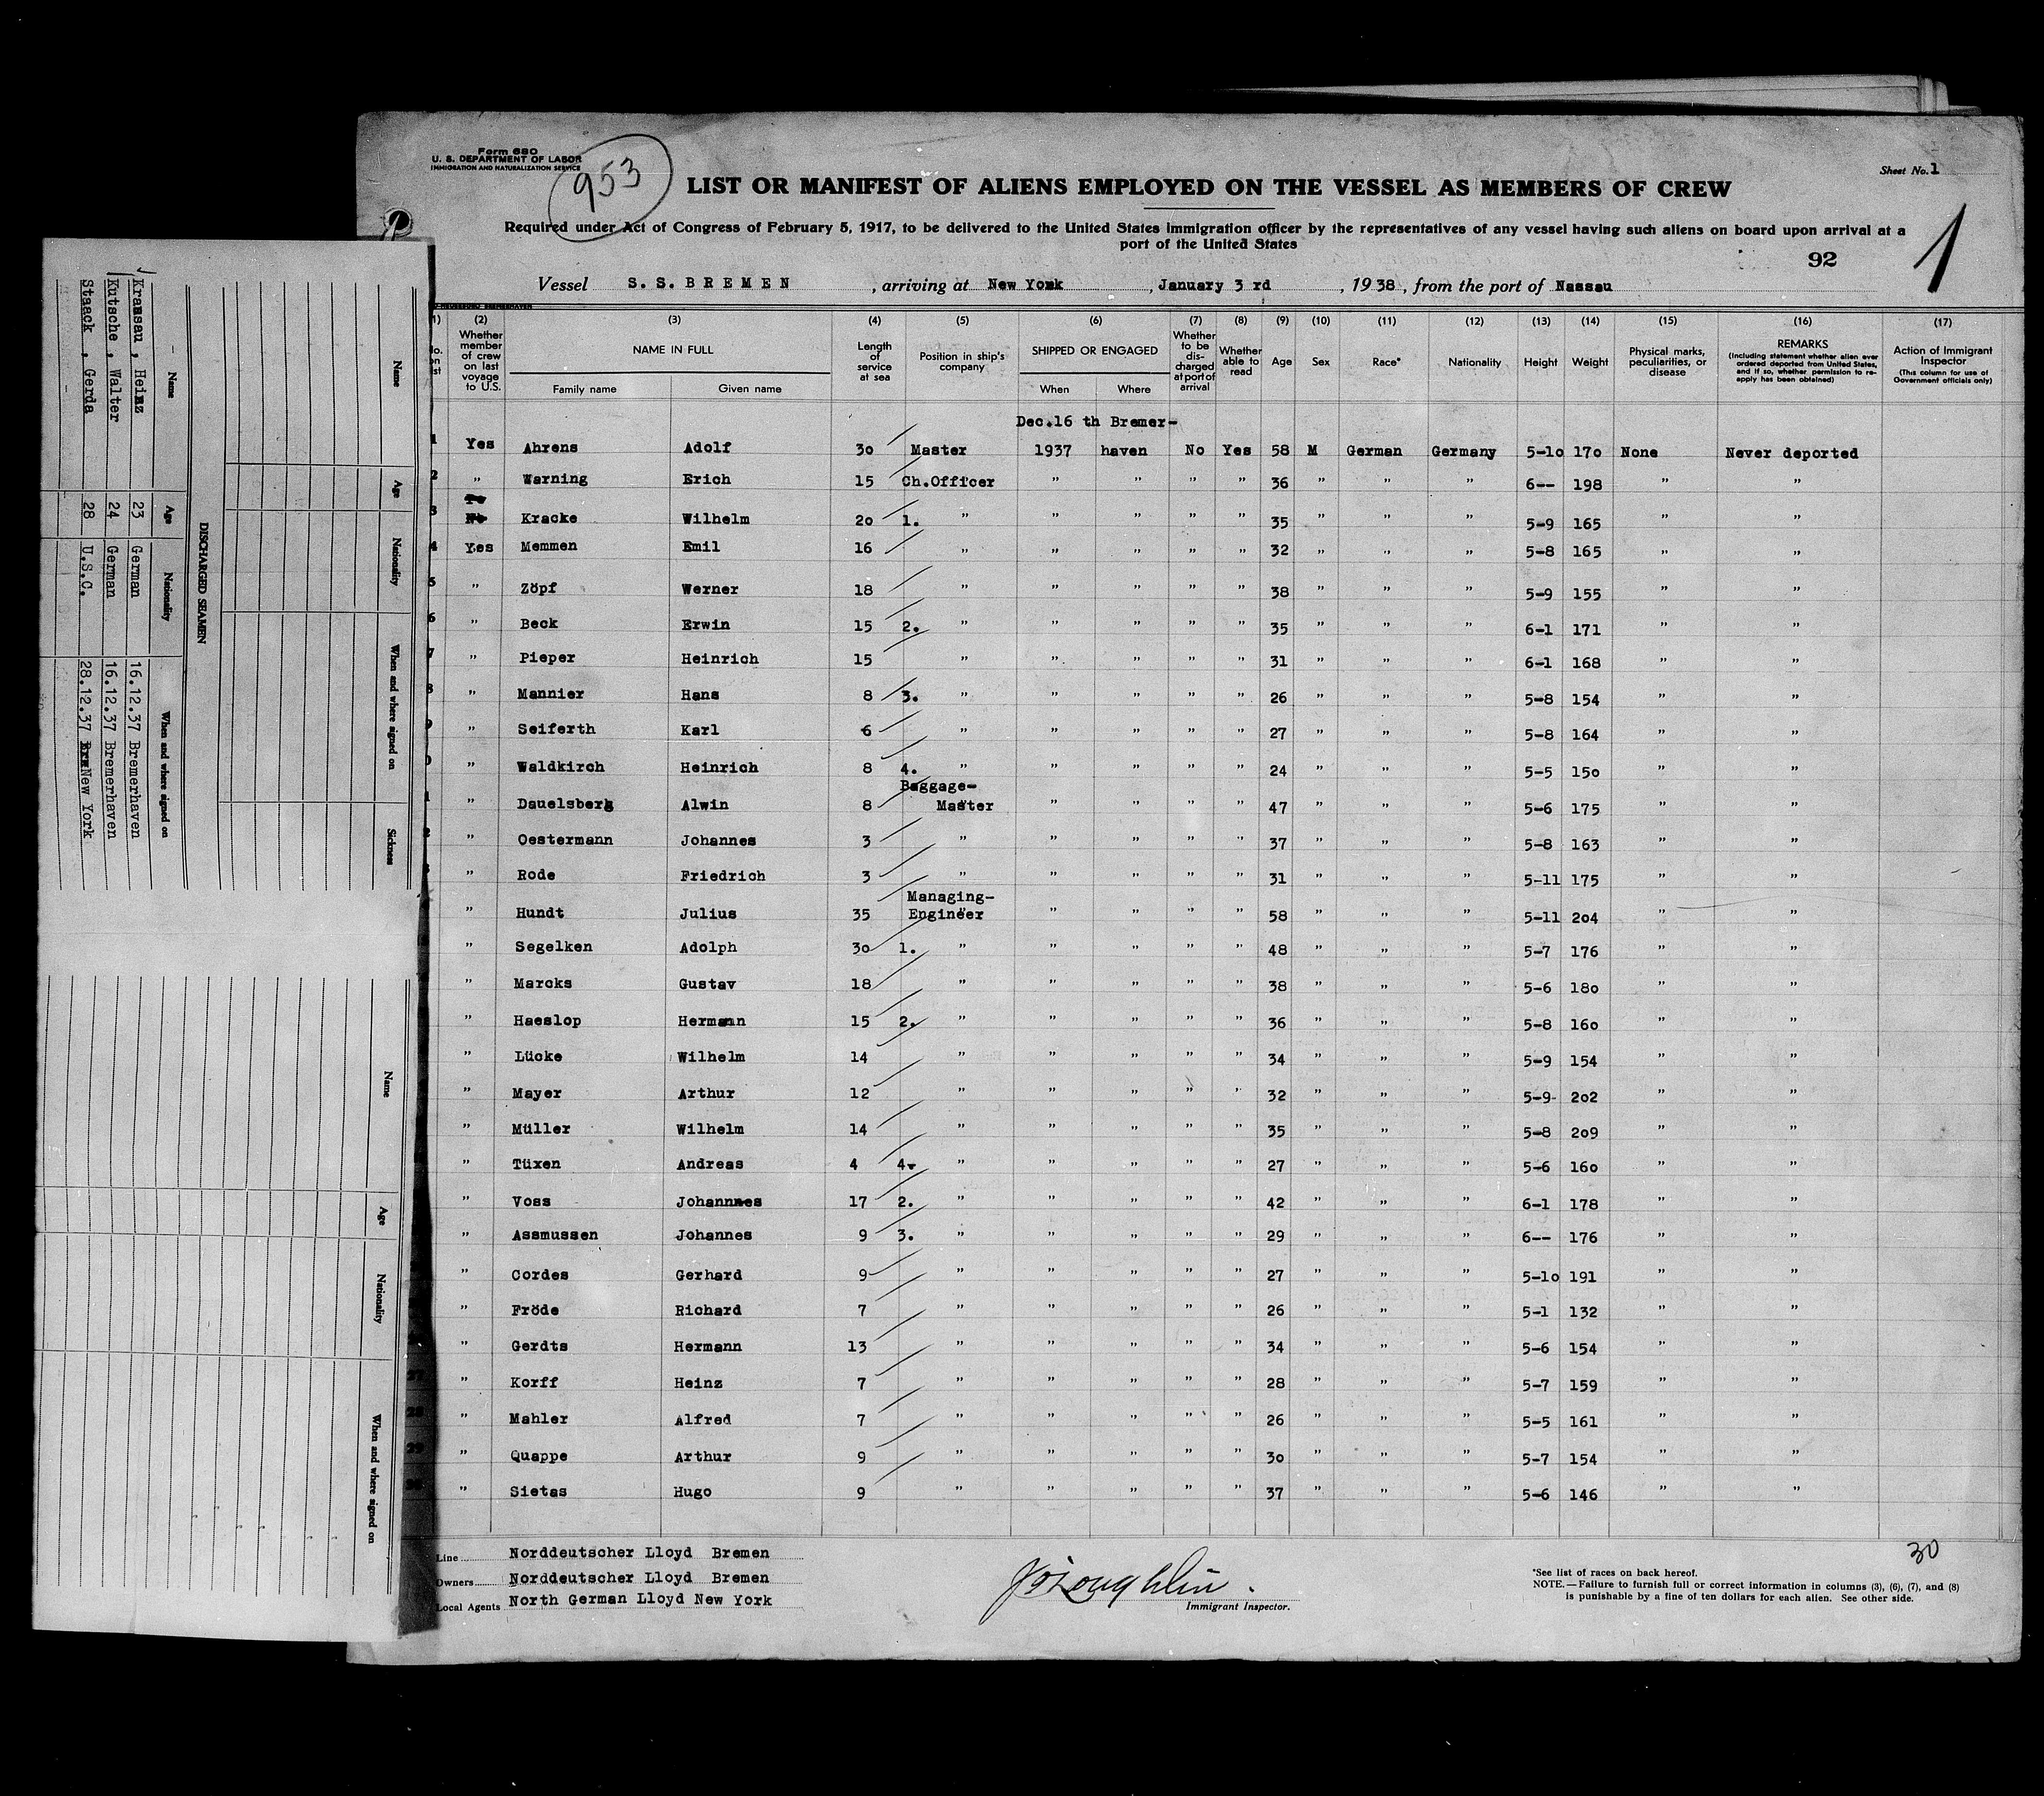 Form 680
U. S. DEPARTMENT OF LABOR
IMMIGRATION AND NATURALIZATION SERVICE
953
Sheet No. 1
LIST OR MANIFEST OF ALIENS EMPLOYED ON THE VESSEL AS MEMBERS OF CREW
Required under Act of Congress of February 5, 1917, to be delivered to the United States immigration officer by the representatives of any vessel having such aliens on board upon arrival at a
port of the United States
92
1
Vessel S. S. B R E M E N , arriving at New York , January 3 rd , 1938 , from the port of Nassau
(2) (3) (4) (5) (6) (7) (8) (9) (10) (11) (12) (13) (14) (15) (16) (17)
Whether member of crew on last voyage to U.S.
NAME IN FULL
Family name Given name
Length of service at sea
Position in ship's company
SHIPPED OR ENGAGED
When Where
Whether to be discharged at port of arrival
Whether able to read
Age Sex Race* Nationality Height Weight
Physical marks, peculiarities, or disease
REMARKS
(Including statement whether alien ever ordered deported from United States, and if so, whether permission to re-apply has been obtained)
Action of Immigrant Inspector
(This column for use of Government officials only)
Dec.16 th Bremer-
1 Yes Ahrens Adolf 30 Master 1937 haven No Yes 58 M German Germany 5-10 170 None Never deported
2 " Warning Erich 15 Ch.Officer " " " " 36 " " " 6-- 198 " "
3 Kracke Wilhelm 20 1. " " " " " 35 " " " 5-9 165 " "
4 Yes Memmen Emil 16 " " " " " 32 " " " 5-8 165 " "
5 " Zöpf Werner 18 " " " " " 38 " " " 5-9 155 " "
6 " Beck Erwin 15 2. " " " " " 35 " " " 6-1 171 " "
7 " Pieper Heinrich 15 " " " " " 31 " " " 6-1 168 " "
8 " Mannier Hans 8 3. " " " " " 26 " " " 5-8 154 " "
9 " Seiferth Karl 6 " " " " " 27 " " " 5-8 164 " "
" Waldkirch Heinrich 8 4. " " " " " 24 " " " 5-5 150 " "
Baggage-
" Dauelsberg Alwin 8 Master " " " " 47 " " " 5-6 175 " "
" Oestermann Johannes 3 " " " " " 37 " " " 5-8 163 " "
" Rode Friedrich 3 " " " " " 31 " " " 5-11 175 " "
Managing-
" Hundt Julius 35 Engineer " " " " 58 " " " 5-11 204 " "
" Segelken Adolph 30 1. " " " " " 48 " " " 5-7 176 " "
" Marcks Gustav 18 " " " " " 38 " " " 5-6 180 " "
" Haeslop Hermann 15 2. " " " " " 36 " " " 5-8 160 " "
" Lücke Wilhelm 14 " " " " " 34 " " " 5-9 154 " "
" Mayer Arthur 12 " " " " " 32 " " " 5-9 202 " "
" Müller Wilhelm 14 " " " " " 35 " " " 5-8 209 " "
" Tüxen Andreas 4 4. " " " " " 27 " " " 5-6 160 " "
" Voss Johannnes 17 2. " " " " " 42 " " " 6-1 178 " "
" Assmussen Johannes 9 3. " " " " " 29 " " " 6-- 176 " "
" Cordes Gerhard 9 " " " " " 27 " " " 5-10 191 " "
" Fröde Richard 7 " " " " " 26 " " " 5-1 132 " "
" Gerdts Hermann 13 " " " " " 34 " " " 5-6 154 " "
27 " Korff Heinz 7 " " " " " 28 " " " 5-7 159 " "
28 " Mahler Alfred 7 " " " " " 26 " " " 5-5 161 " "
29 " Quappe Arthur 9 " " " " " 30 " " " 5-7 154 " "
30 " Sietas Hugo 9 " " " " " 37 " " " 5-6 146 " "
30
Line Norddeutscher Lloyd Bremen
Owners Norddeutscher Lloyd Bremen
Local Agents North German Lloyd New York
J O'Loughlin.
Immigrant Inspector.
*See list of races on back hereof.
NOTE.—Failure to furnish full or correct information in columns (3), (6), (7), and (8)
is punishable by a fine of ten dollars for each alien. See other side.
Name Age Nationality When and where signed on Sickness
DISCHARGED SEAMEN
Name Age Nationality When and where signed on
Kramsau , Heinz 23 German 16.12.37 Bremerhaven
Kutsche , Walter 24 German 16.12.37 Bremerhaven
Staack , Gerda 28 U.S.C. 28.12.37 New York
Name Age Nationality When and where signed on